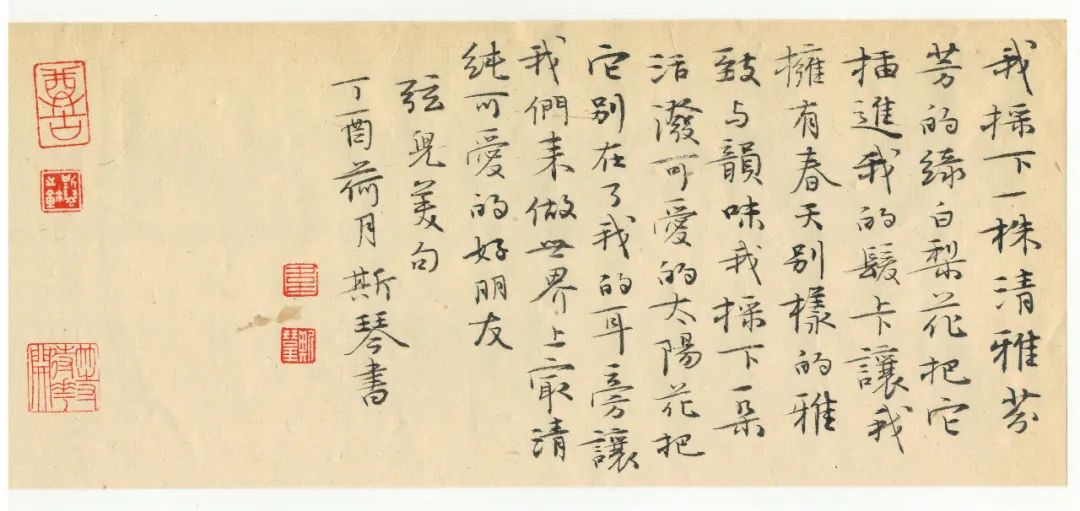 我採下一株清雅芬
芳的緑白梨花把它
插進我的髮卡讓我
擁有春天别樣的雅
致与韻味我採下一朵
活潑可愛的太陽花把
它别在了我的耳旁讓
我們来做世界上最清
纯可愛的好朋友
弦兒美句
丁酉荷月斯琴書